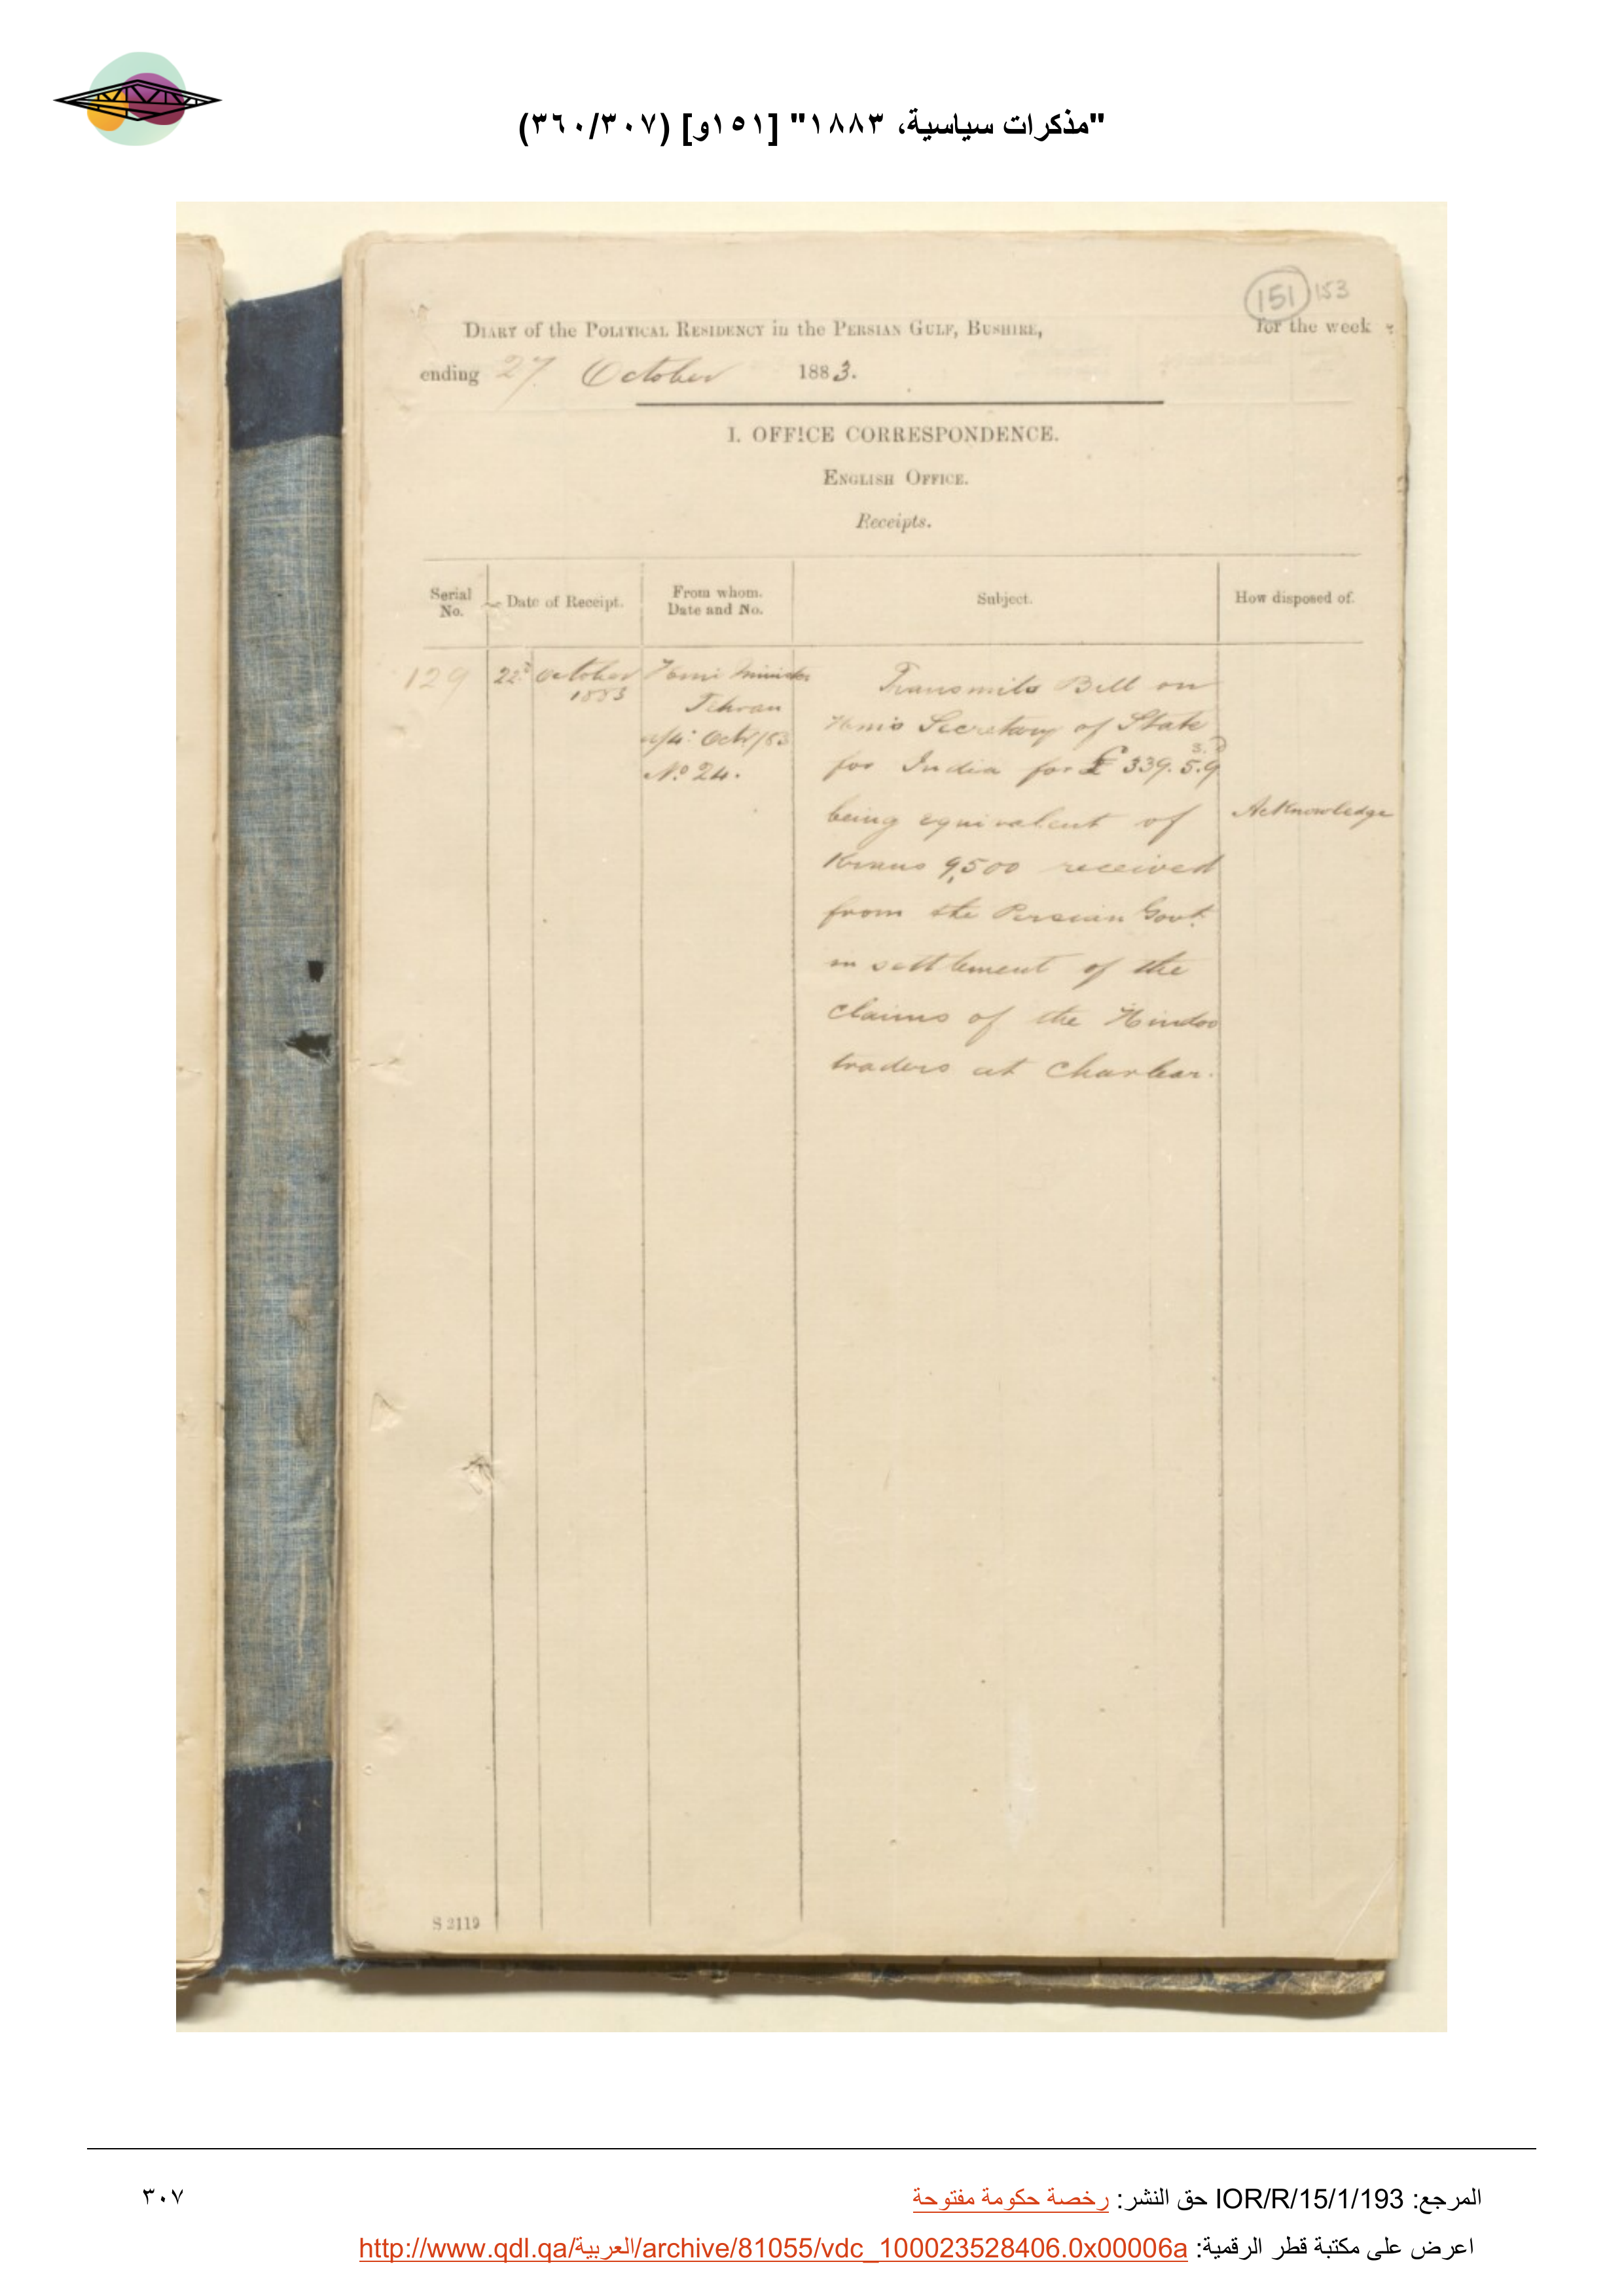 "مذكرات سياسية، ١٨٨٣" [١٥١و] (٣٦٠/٣٠٧)
151 153
DIARY of the POLITICAL RESIDENCY in the PERSIAN GULF, BUSHIRE, for the week
ending 27 October 1883.
I. OFFICE CORRESPONDENCE.
ENGLISH OFFICE.
Receipts.
Serial No.
Date of Receipt.
From whom. Date and No.
Subject.
How disposed of.
129
22d October
1883
Minister
Tehran
Oct/83
No 24.
Transmits Bill on
Secretary of State
for India for £ 339. 5. 9
being equivalent of
Krans 9,500 received
from the Persian Govt.
in settlement of the
claims of the Hindoo
traders at Charbar.
Acknowledge
S 2119
المرجع: IOR/R/15/1/193 حق النشر: رخصة حكومة مفتوحة
٣٠٧
اعرض على مكتبة قطر الرقمية: http://www.qdl.qa/العربية/archive/81055/vdc_100023528406.0x00006a